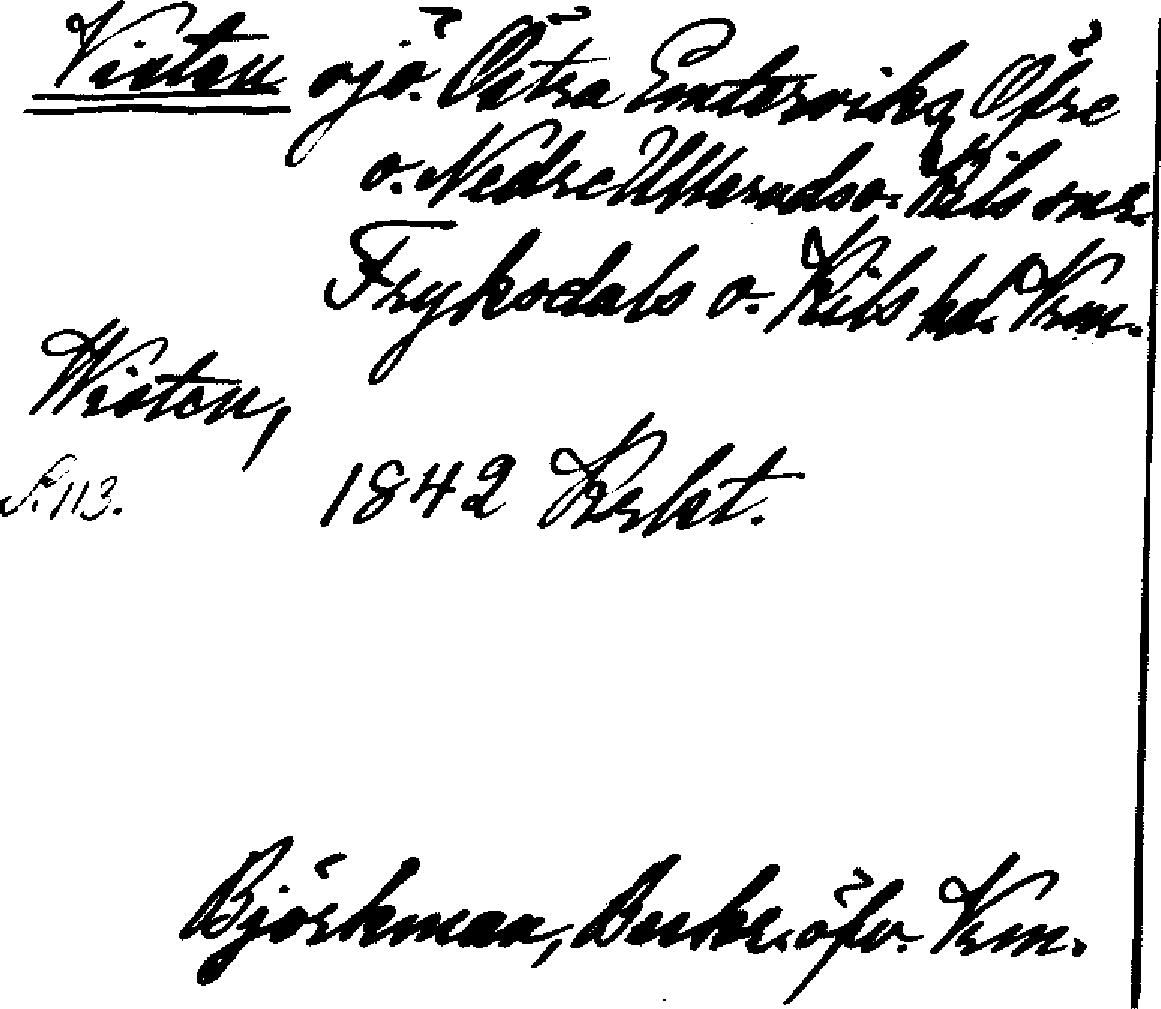 Visten sjö. Östra Emterviks, Öfre
o. Nedre Ulleruds o. Kils snr.
Fryksdals o. Kils hd. Vrm.
Wisten,
S. 113. 1842 Krbt.
Björkman, Beskr. öfv. Vrm.